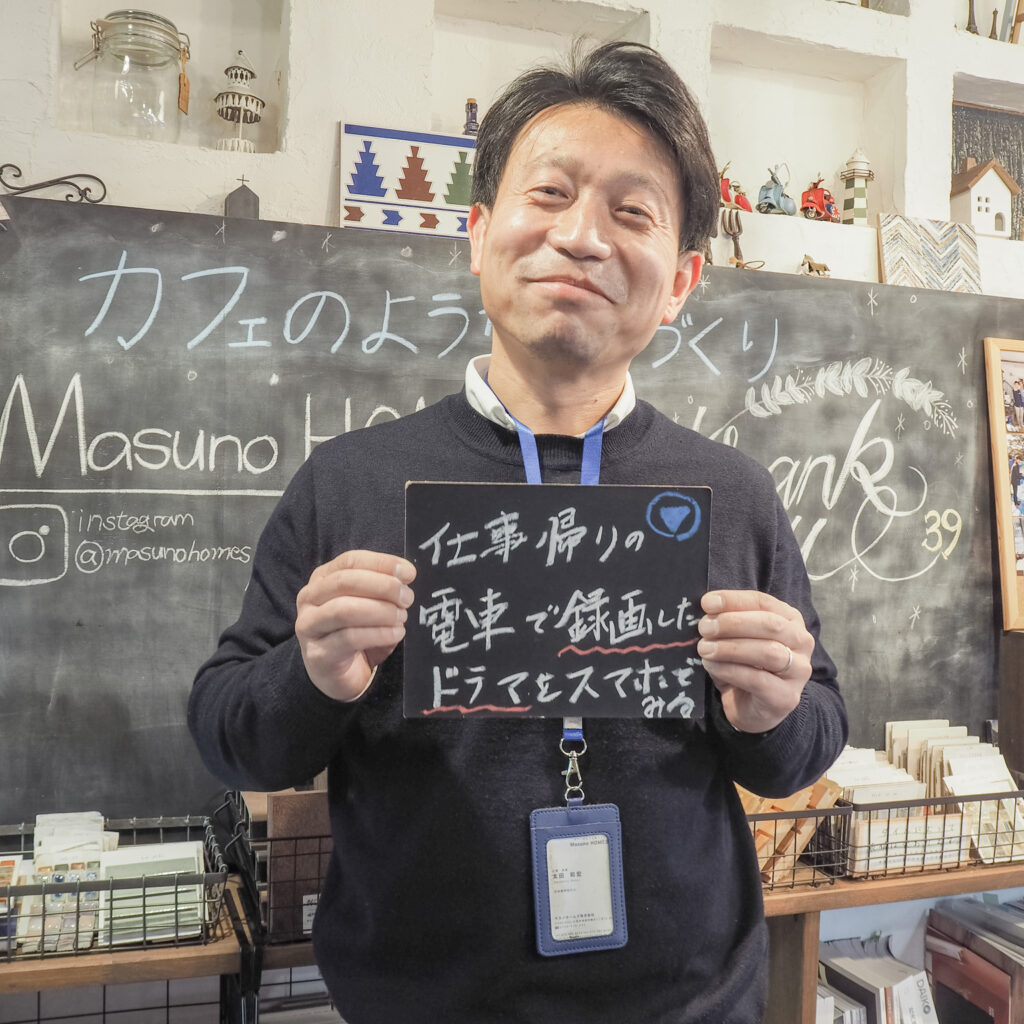 カフェのよう
づくり
Masuno
instagram
@masunohomes
39
仕事帰りの
電車で録画した
ドラマをスマホで
みる
Masuno HOMES
太田
DAIKO